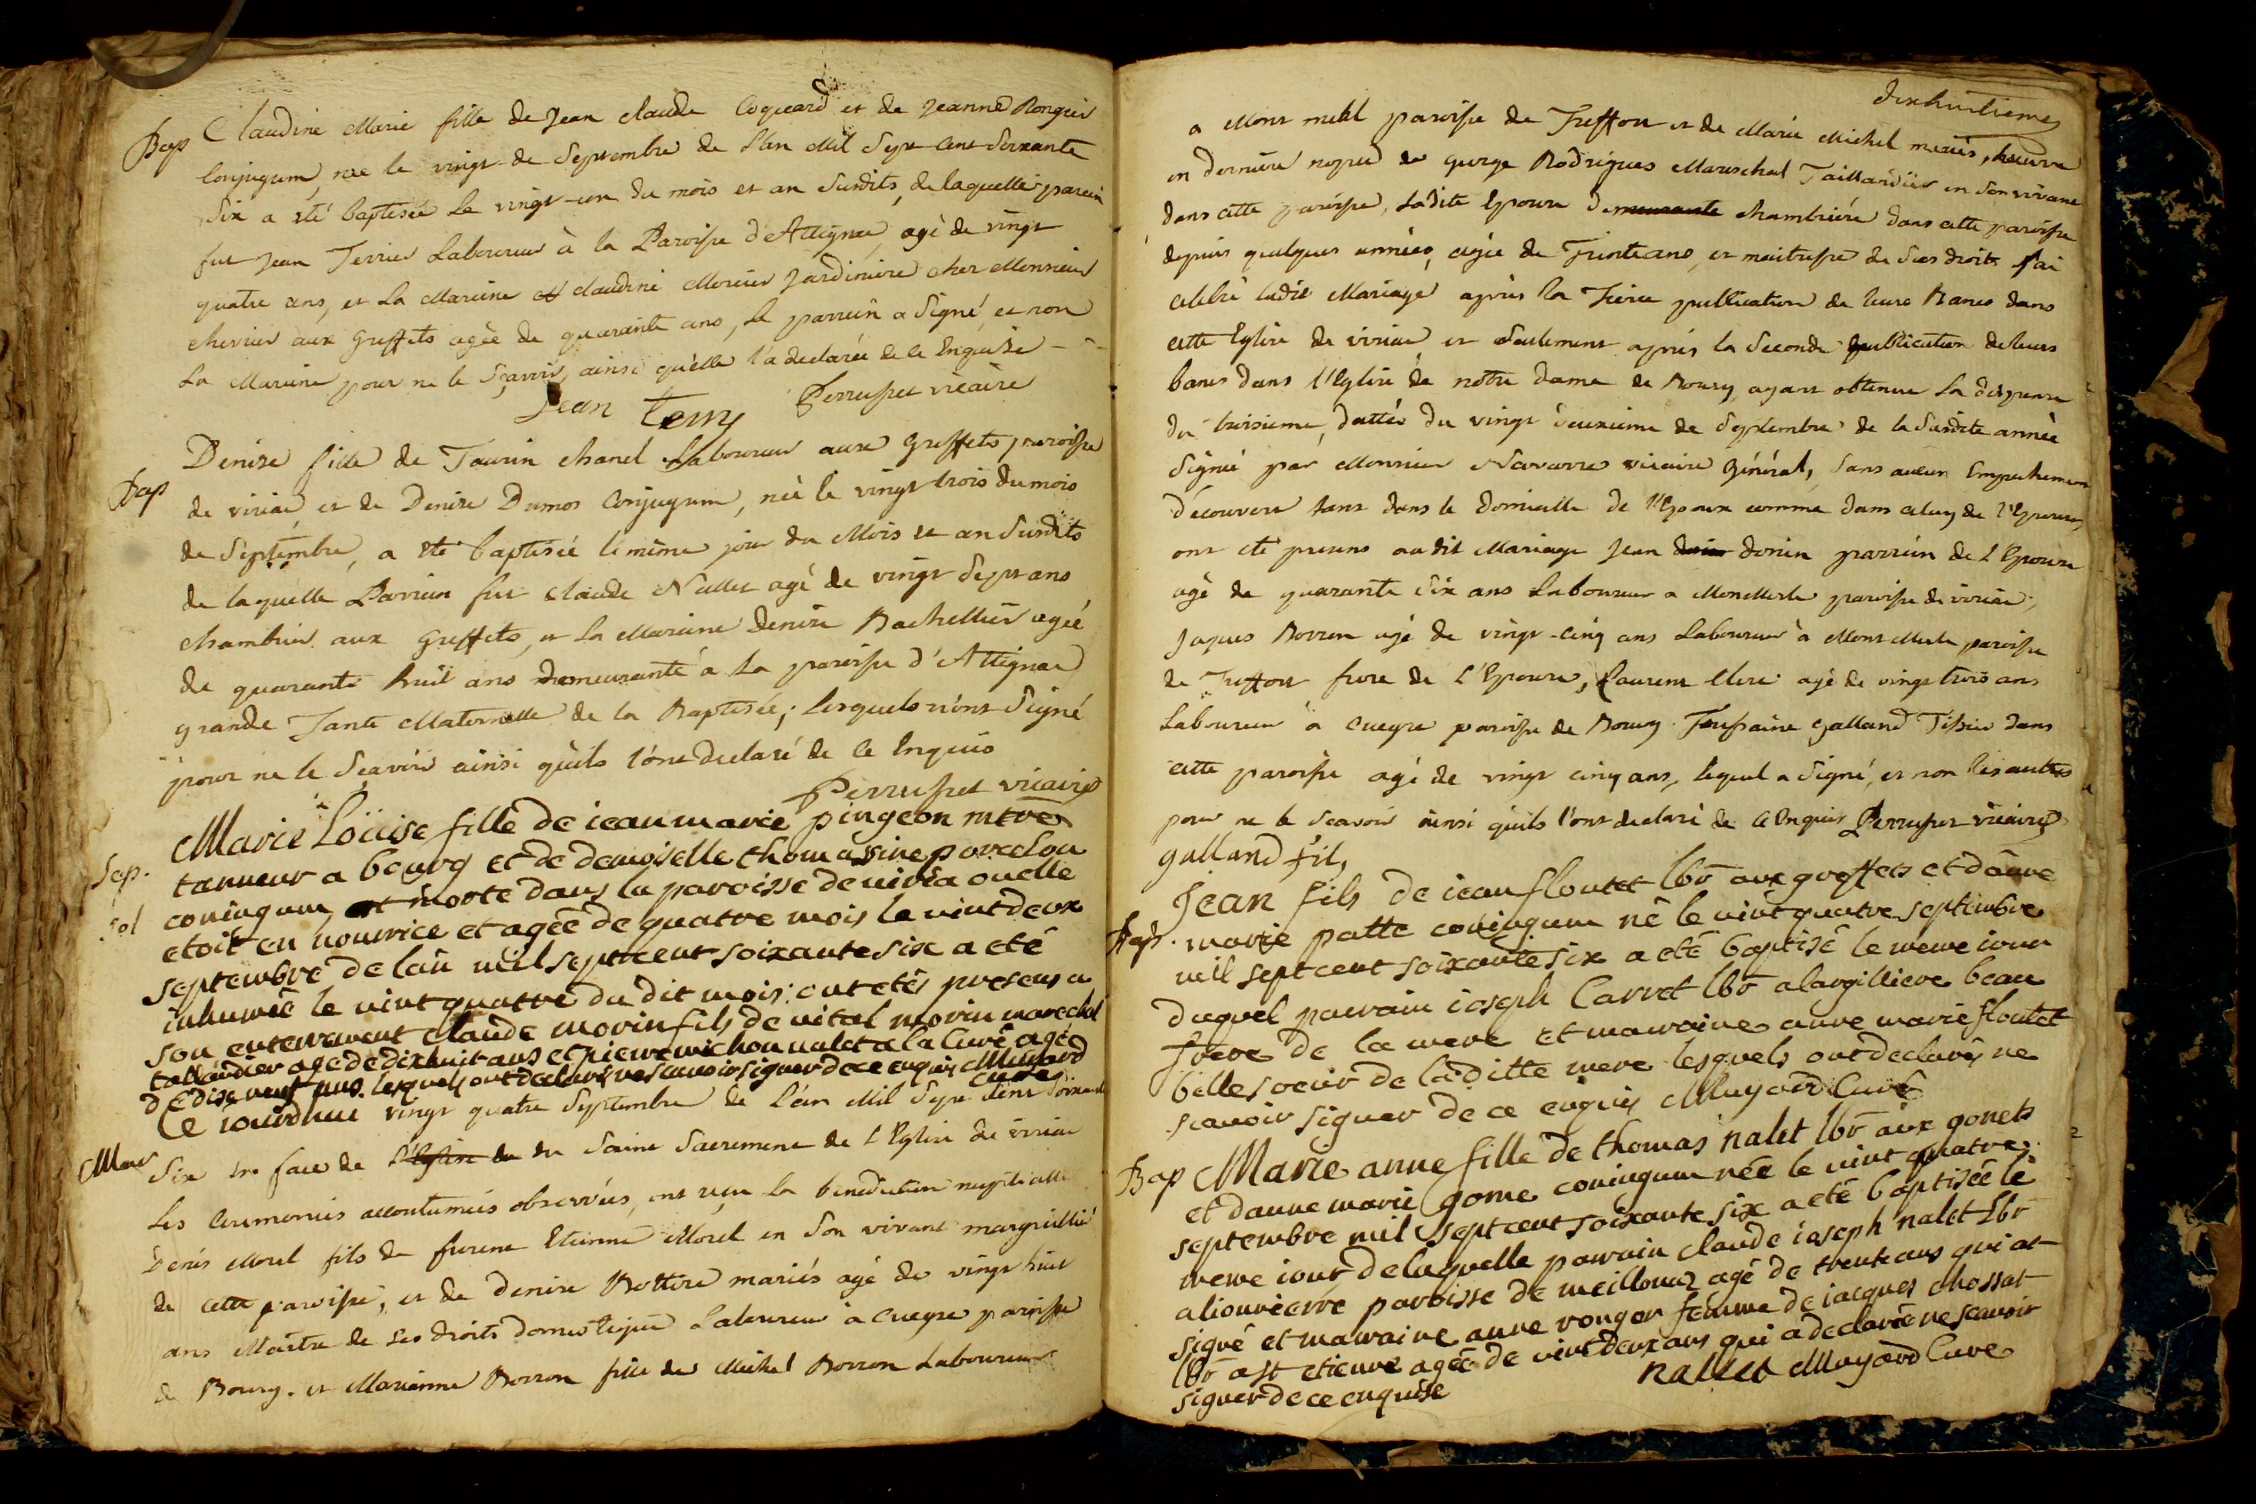 Bap Claudine Marie fille de Jean claude Coqueard et de Jeanne Ronger
Conjugum, née le vingt de Septembre de l'an Mil Sept Cent Soixante
Six a été baptisée le vingt-un du mois et an Susdits, de laquelle parein
fut Jean Terrier Laboureur à la Paroisse d'Attignac, agé de vingt
quatre ans, et la Mareine Claudine Mercier Jardiniere chez Monsieur
chevrier aux Greffets agée de quarante ans, le parrein a Signé, et non
La Mareine pour ne le Sçavoir, ainsi qu'elle l'a declarée de ce Enquise
Jean Terry Perruset vicaire
Bap Denise fille de Taurin chanel Laboureur aux Greffets paroisse
de viriac et de Denise Dumos Conjugum, née le vingt trois du mois
de Septembre, a été baptisée le même jour du Mois et an Susdits
de laquelle Parrein fut claude Nallet agé de vingt Sept ans
chambrier aux Greffets, et la Mareine Denise Bachellier agée
de quarante huit ans demeurante à la paroisse d'Attignac
grande Tante Maternelle de la Baptisée; lesquels n'ont Signé
pour ne le Sçavoir ainsi qu'ils l'ont declaré de ce Enquis
Perruset vicaire
Sep. Marie Loüise fille de iean marie pingeon mtre
tanneur a bourg et de demoiselle thomassine porcelon
sol coniugum, est morte dans la paroisse de viria ou elle
etoit en nourrice et agée de quatre mois le vint deux
septembre de lan mil sept cent soixante six a eté
inhumée le vint quatre du dit mois: ont etés presens a
son enterrement claude morin fils de vital morin marechal
tallandier agé de dixhuit ans et pierre michon valet a la cure agé
de dixneuf ans lesquels ont declarés ne scavoir signer de ce enquis Muyard
Ce iourdhui vingt quatre Septembre de L'an Mil Sept Cent Soixante Curé
Mar Six en face de du Saint Sacrement de L'Eglise de viriac
les Ceremonies accoutumées observées, ont reçu la benediction nuptialle
Denis Morel fils de Etienne Morel en Son vivant margueillié
de cette paroisse, et de Denise Bottire mariés agé de vingt huit
ans Maître de Ses droits domestique Laboureur à Cuegre paroisse
de Bourg. et Marianne Borron fille de Michel Borron Laboureur
dixhuitieme
a Mont merle paroisse de Treffort et de Marie Michel mariés, veuve
en derniere nopce de George Rodrigues Mareschal Taillandier en Son vivant
dans cette paroisse, ladite Epouse demeurante chambriére dans cette paroisse
depuis quelques années, agée de Trente ans, et maitresse de Ses droits J'ai
celebré ledit Mariage après la Tierce publication de leurs Bancs dans
cette Eglise de viriac et Seulement après la Seconde publication de leurs
bancs dans l'Eglise de notre dame de Bourg ayant obtenue la dispense
du troisieme, dattée du vingt deuxieme de Septembre de la Susdite année
Signée par Monsieur Navarre vicaire Général, Sans aucun Empechement
découvert tant dans le domicille de l'Epoux comme dans celuy de l'Epouse,
ont été presens audit Mariage Jean donin parrein de L'Epouse
agé de quarante Six ans Laboureur a Montmerle paroisse de viriac,
Jaques Borron agé de vingt-cinq ans Laboureur à Mont Merle paroisse
de Treffort frere de L'Epouse, Laurent Clere agé de vingt trois ans
Laboureur à Cuegre paroisse de Bourg Toussaint Galland Tissier dans
cette paroisse agé de vingt cinq ans, lequel a Signé, et non les autres
pour ne le Scavoir ainsi qu'ils l'ont declaré de ce Enquis Perruset vicaire
galland fils
Jean fils de iean floutet lbr aux greffets et danne
Bap. marie patte coniugum né le vint quatre septembre
mil sept cent soixante six a eté baptisé le meme iour
duquel parrain ioseph Carret lbr a largilliere beau
frere de la mere et marraine anne marie floutet
belle soeur de la ditte mere lesquels ont declarés ne
scavoir signer de ce enquis Muyard Curé
Bap Marie anne fille de thomas nalet lbr aux gonets
et danne marie gome coniugum née le vint quatre
septembre mil sept cent soixante six a eté baptisée le
meme iour de laquelle parrain claude ioseph nalet lbr
a liouvierre paroisse de meillonaz agé de trente ans qui at
signé et marraine anne rongon femme de iacques chossat
lbr a st etienne agée de vint deux ans qui a declarée ne scavoir
signer de ce enquise nallet Muyard Cure